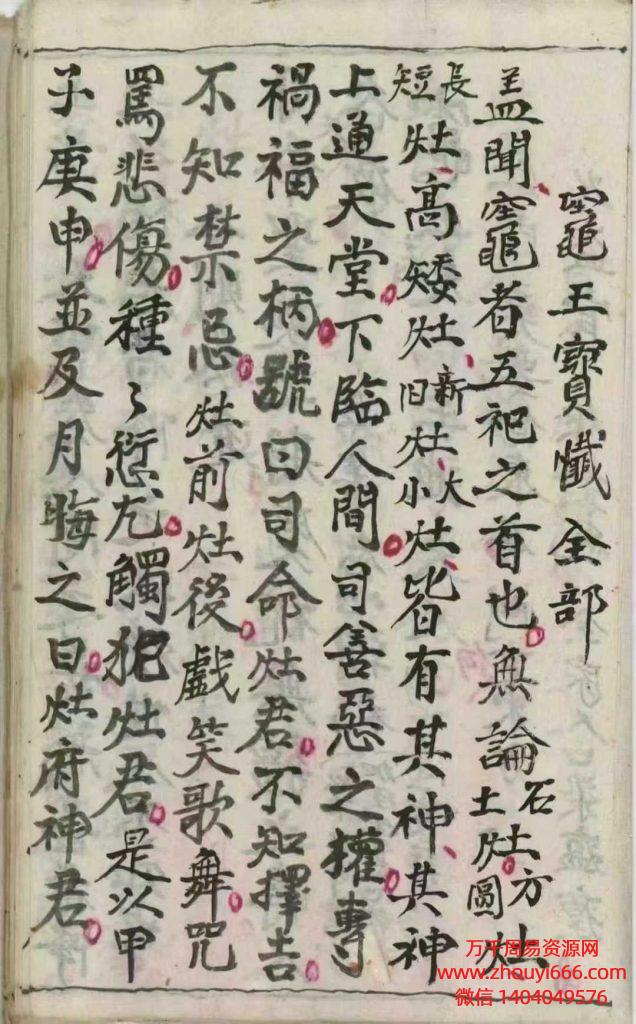 竈王寳懺全部
盖聞竈者五祀之首也無論石土灶方圓灶
長短灶高矮灶新旧灶大小灶皆有其神其神
上通天堂下臨人間司善惡之權專
禍福之柄號曰司命灶君不知擇吉
不知禁忌灶前灶後戲笑歌舞咒
罵悲傷種々愆尤觸犯灶君是以甲
子庚申並及月晦之日灶府神君
万千周易资源网
www.zhouyi666.com
微信1404049576